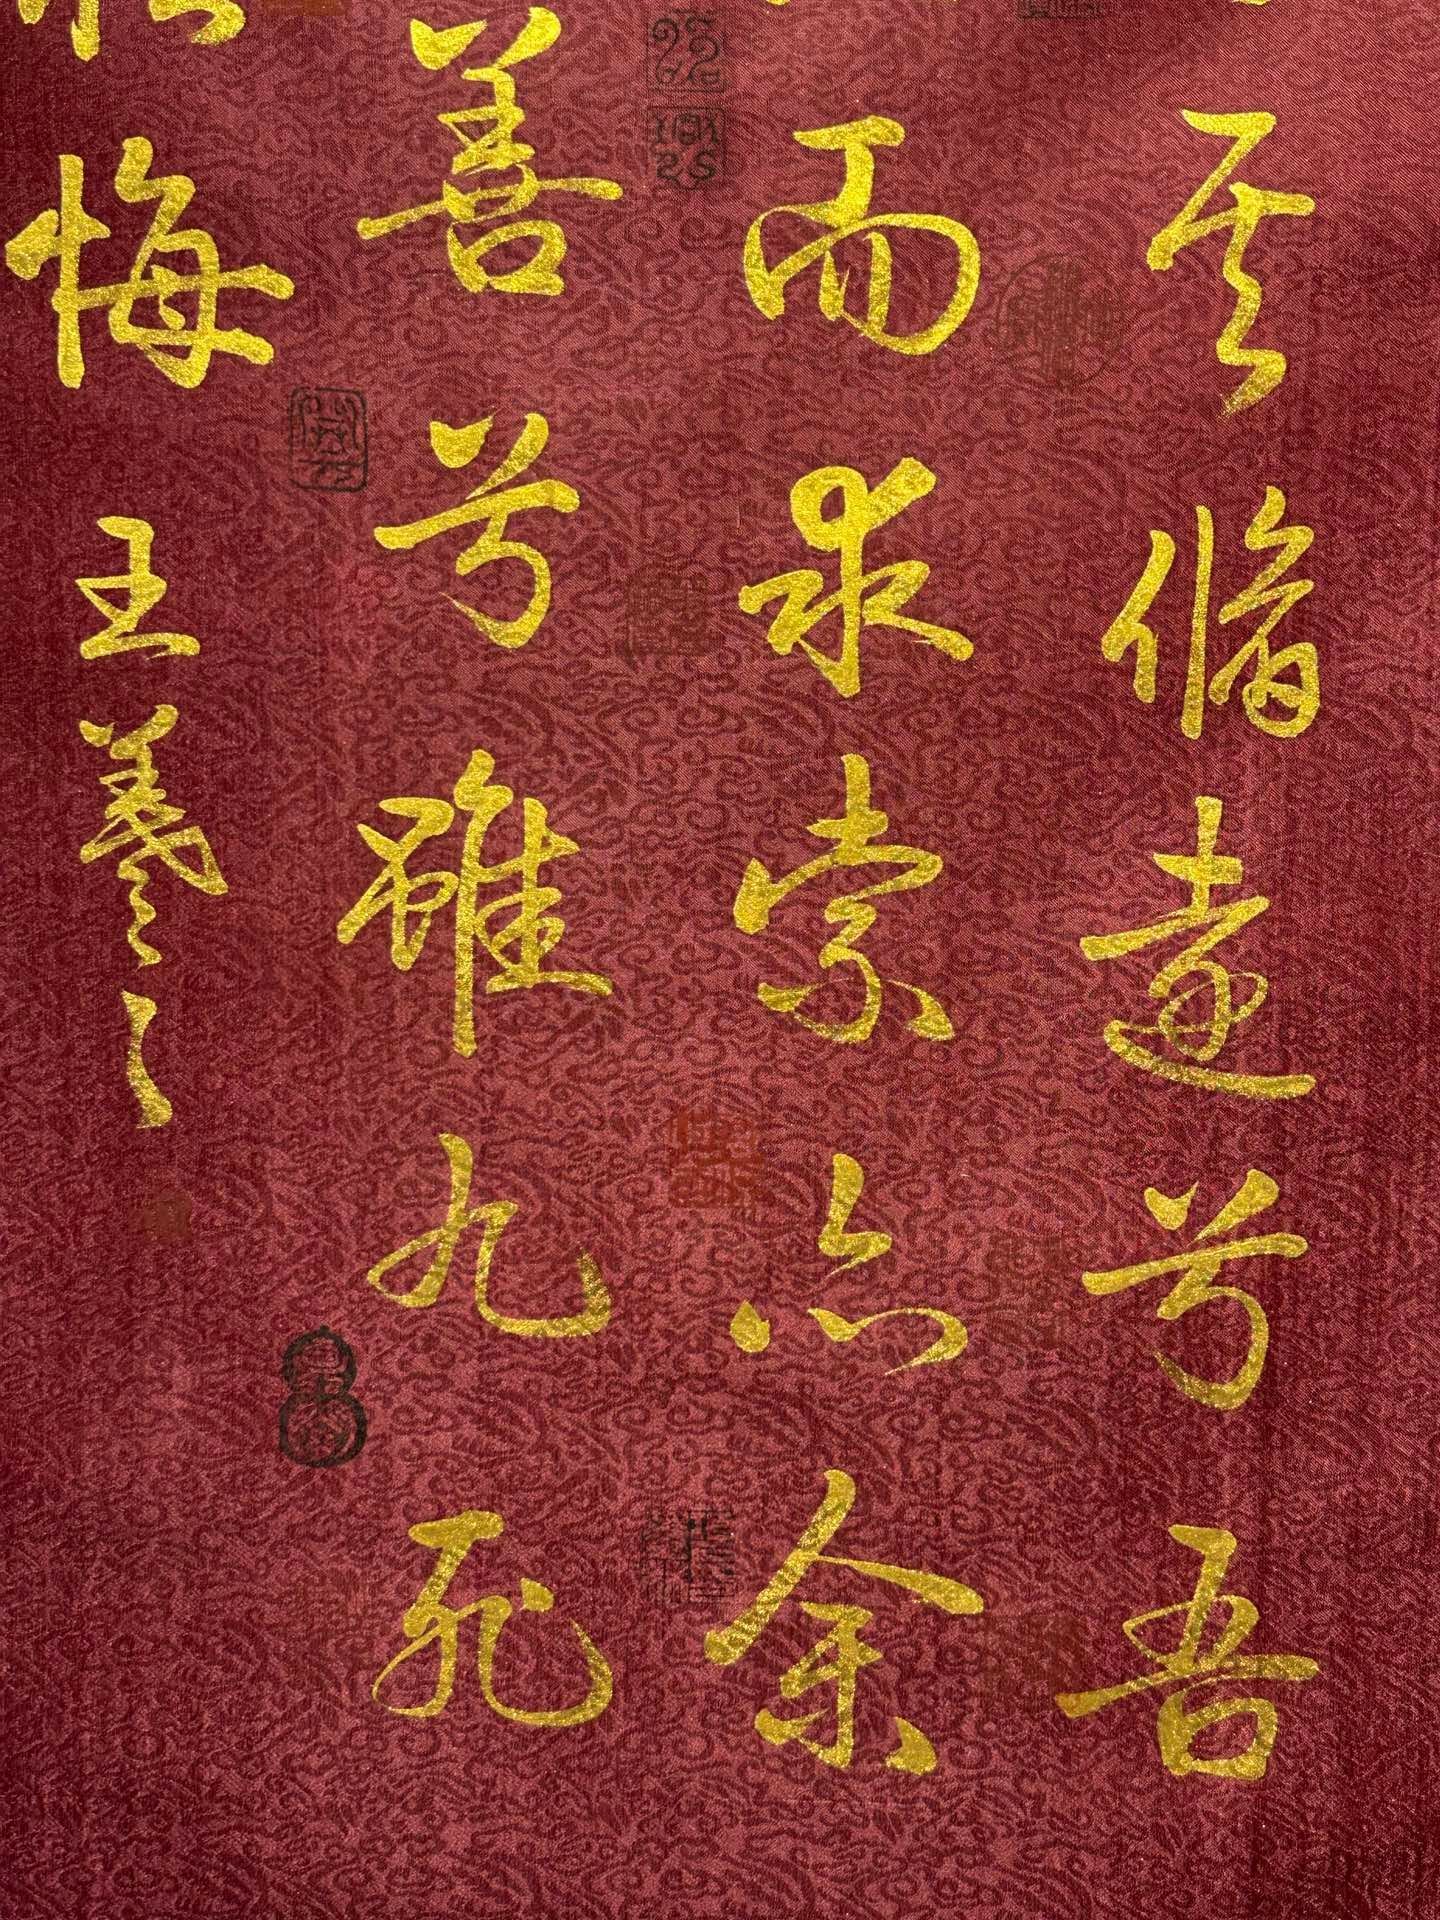 其脩遠兮吾
而求索亦余
善兮雖九死
悔
王羲之